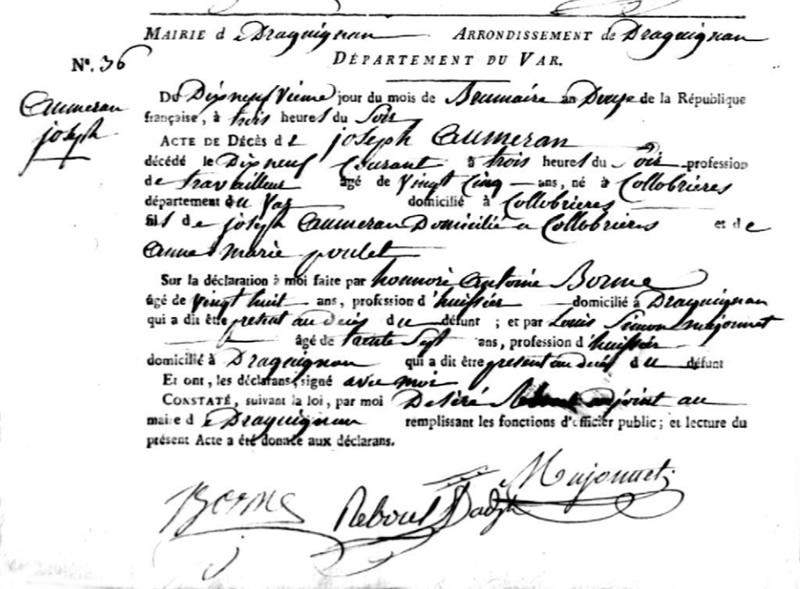 MAIRIE d e Draguignan ARRONDISSEMENT de Draguignan
N°. 36 DÉPARTEMENT DU VAR.
Caumeran
joseph
Du Dixneuvieme jour du mois de Brumaire an Douze de la République
française, à trois heures du Soir
ACTE DE DÉCÈS DE joseph Caumeran
décédé le Dixneuf Courant à trois heures du Soir profession
de travailleur âgé de Vingt Cinq ans, né à Collobrières
département du Var domicilié à Collobrieres
fils de joseph Caumeran Domicilié a Collobrieres et de
anne marie poulet
Sur la déclaration à moi faite par honnoré Antoine Borme
âgé de Vingt huit ans, profession d'huissier domicilié à Draguignan
qui a dit être présent au décès du défunt ; et par Louis Simon Majonnet
âgé de trente Sept ans, profession d'huissier
domicilié à Draguignan qui a dit être présent au décès du défunt
Et ont, les déclarans, signé avec moi
CONSTATÉ, suivant la loi, par moi Désiré Reboul adjoint au
maire d e Draguignan remplissant les fonctions d'officier public; et lecture du
présent Acte a été donnée aux déclarans.
Majonnet
Borme Reboul